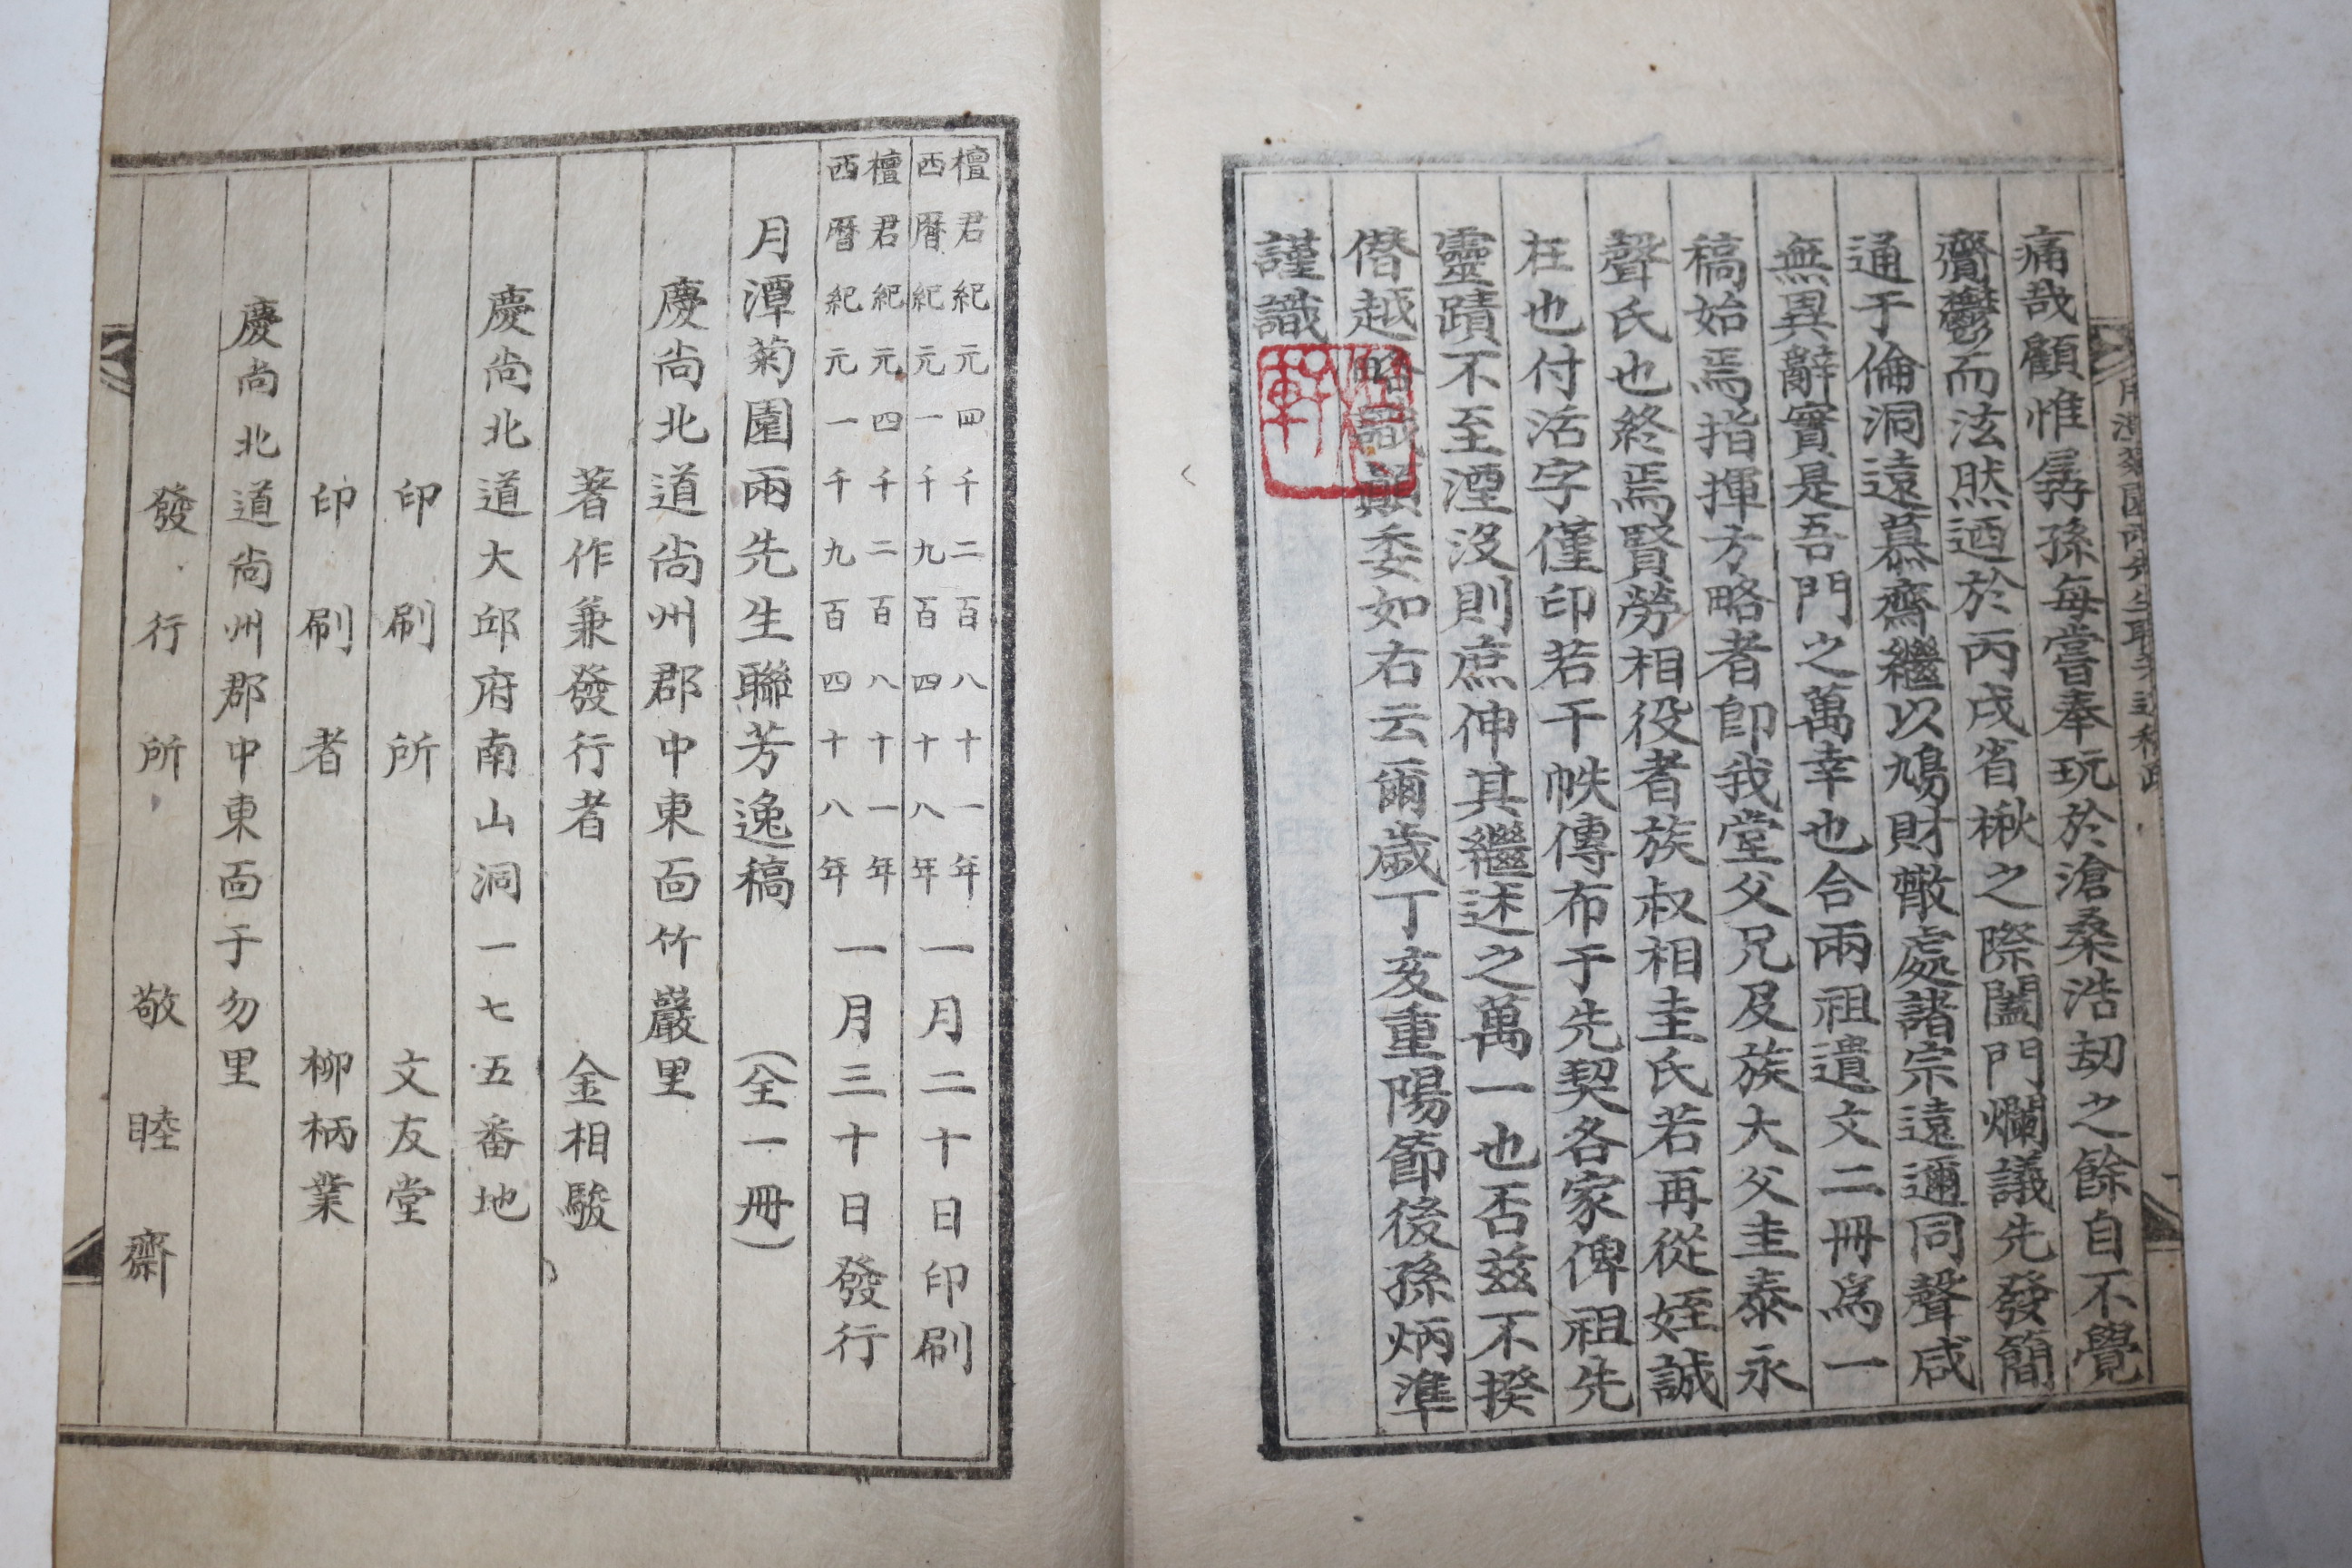 痛哉顧惟孱孫每嘗奉玩於滄桑浩劫之餘自不覺
齎鬱而泫然迺於丙戌省楸之際闔門爛議先發簡
通于倫洞遠慕齋繼以鳩財敵處諸宗遠邇同聲咸
無異辭實是吾門之萬幸也合兩祖遺文二冊爲一
稿始焉指揮方略者卽我堂父兄及族大父圭泰永
聲氏也終焉賢勞相役者族叔相圭氏若再從姪誠
在也付活字僅印若干帙傳布于先契各家俾祖先
靈蹟不至湮沒則庶伸其繼述之萬一也否茲不揆
僭越略識顚委如右云爾歲丁亥重陽節後孫炳準
謹識
檀君紀元四千二百八十一年
西曆紀元一千九百四十八年 一月二十日印刷
檀君紀元四千二百八十一年
西曆紀元一千九百四十八年 一月三十日發行
月潭菊園兩先生聯芳逸稿 (全一冊)
慶尚北道尚州郡中東面竹巖里
著作兼發行者 金相駿
慶尚北道大邱府南山洞一七五番地
印刷所 文友堂
印刷者 柳柄業
慶尚北道尚州郡中東面于勿里
發行所 敬睦齋